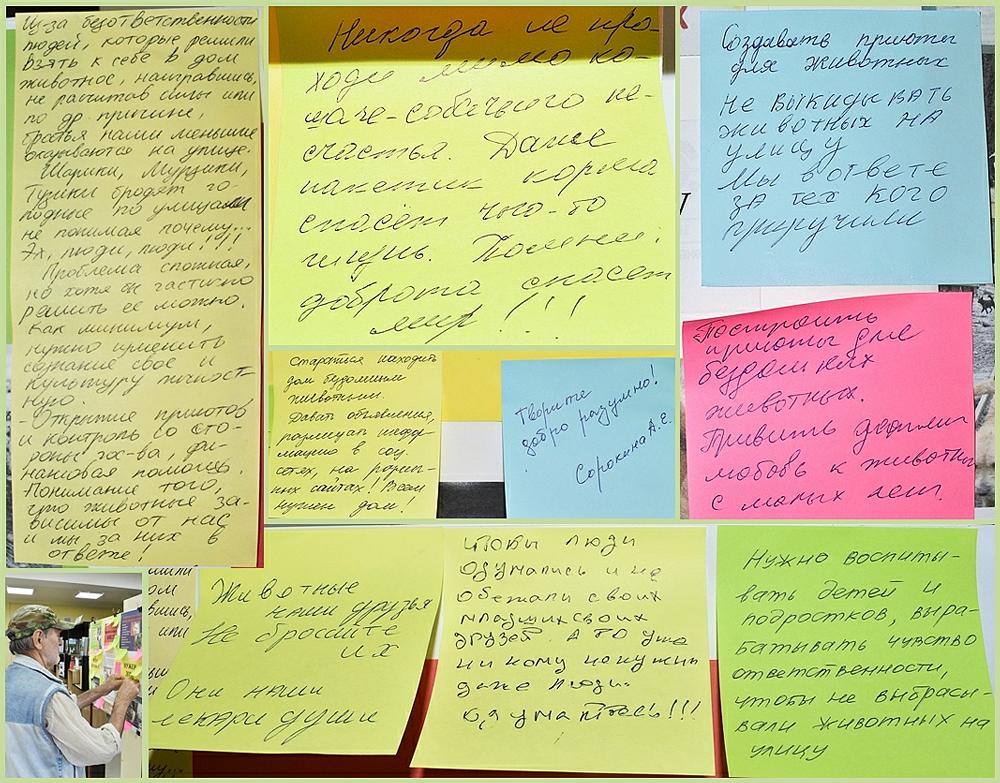 Из-за безответственности
людей, которые решили
взять к себе в дом
животное, наигравшись,
не расчитав силы или
по др. причине,
братья наши меньшие
оказываются на улице.
Шарики, Мурзики,
Тузики бродят го-
лодные по улицам
не понимая почему...
Эх, люди, люди!!!!
Проблема сложная,
но хотя бы частично
решить её можно.
Как минимум,
нужно изменить
сознание свое и
культуру личност-
ную.
- Открытие приютов
и контроль со сто-
роны гос-ва, фи-
нансовая помощь.
Понимание того,
что животные за-
висимы от нас
и мы за них в
ответе!
Никогда не про-
ходи мимо ко-
шаче-собачьего не-
счастья. Даже
пакетик корма
спасёт чью-то
жизнь. Помни:
доброта спасет
мир!!!
Создавать приюты
для животных
Не выкидывать
животных на
улицу
Мы в ответе
за тех кого
приручили
Стараться находить
дом бездомным
животным.
Давать объявления,
размещать инфор-
мацию в соц.
сетях, на разли-
ных сайтах! Всем
нужен дом!
Творите
добро разумно!
Сорокина А.Е.
Построить
приюты для
бездомных
животных.
Привить детям
любовь к животным
с малых лет.
Животные
наши друзья
Не бросайте
их
Они наши
лекари души
Чтобы люди
одумались и не
обежали своих
младших своих
друзей а то уже
ни кому не нужны
даже люди.
Одумайтесь!!!
Нужно воспиты-
вать детей и
подростков, выра-
батывать чувство
ответственности,
чтобы не выбрасы-
вали животных на
улицу